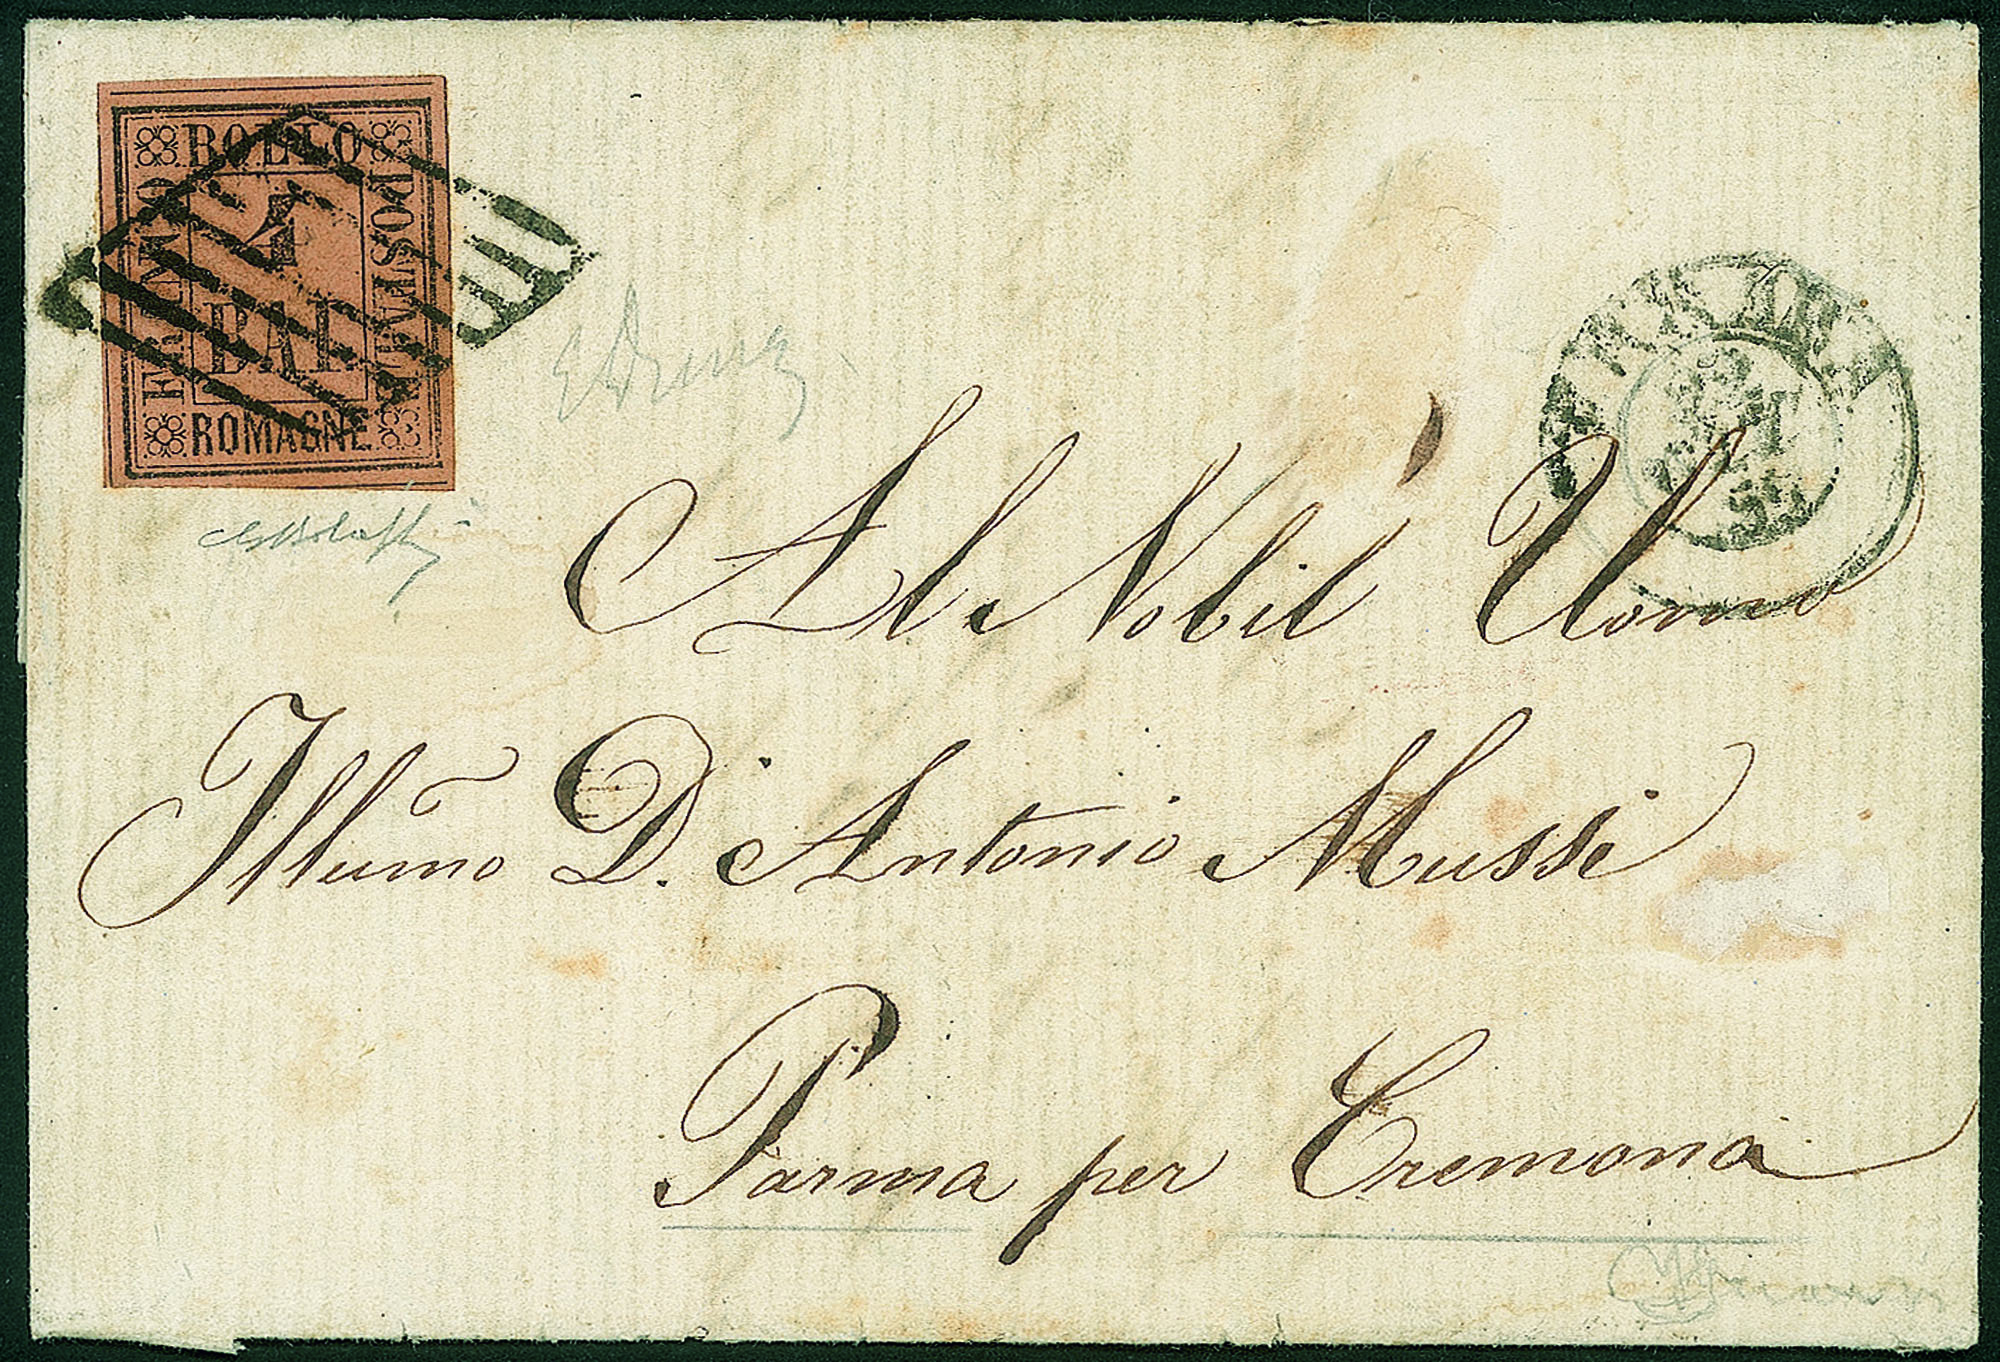 FRANCO
BOLLO
POSTALE
4
BAI
ROMAGNE
Al Nobil' Uomo
Illumo D. Antonio Mussi
Parma per Cremona